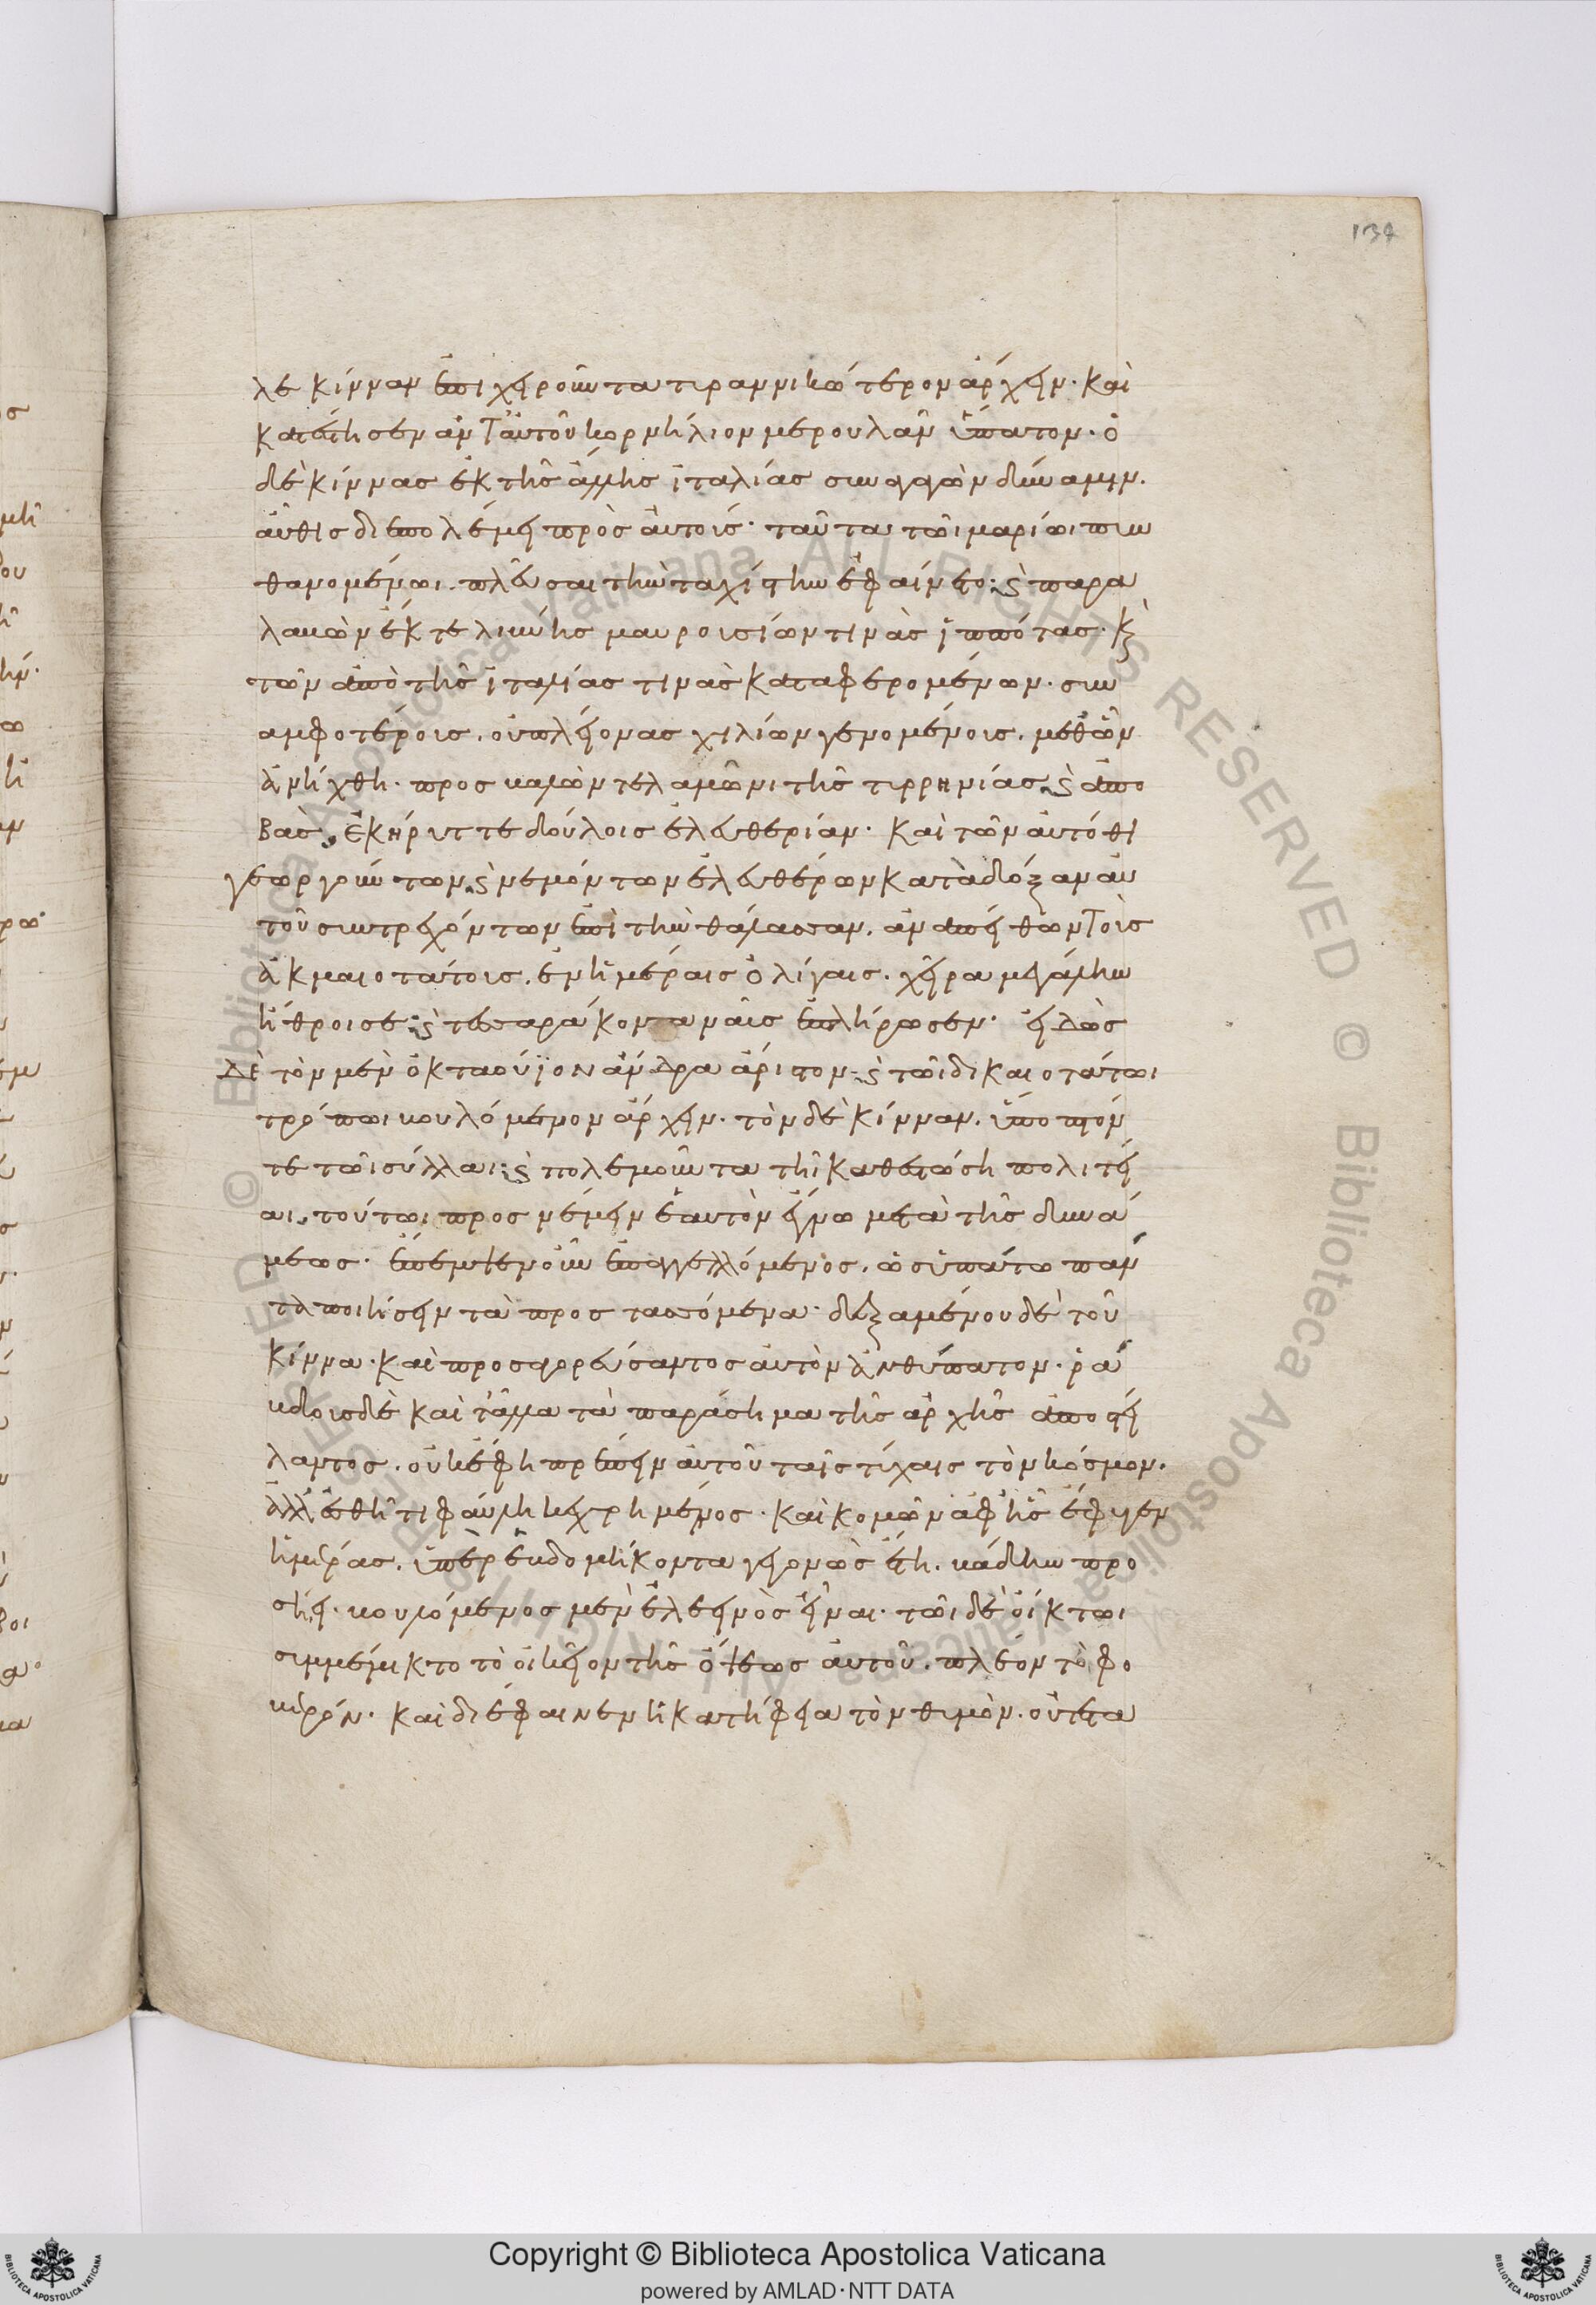 137
λε κίνναν ἐπιχειροῦντα τυραννικώτερον ἄρχειν· καὶ
κατέστησεν ἀντ' αὐτοῦ κορνήλιον μερουλαν ὕπατον· ὁ
δὲ κίννας ἐκ τῆς ἄλλης ἰταλίας συναγαγὼν δύναμιν.
αὖθις διεπολέμει πρὸς αὐτοῖς· ταῦτα τῶι μαρίωι πυν
θανομένωι. πλεῦσαι τὴν ταχίστην ἐφαίνετο· ϛ παρα
λαβὼν ἐκ τε λιβύης μαυρουσίων τινὰς ἱππότας. κ
τῶν ἀπὸ τῆς ἰταλίας τινὰς καταφερομένων. συν
αμφοτέροις. οὐ πλείονας χιλίων γενομένοις. μεθῶν
ἀνήχθη. προσβαλὼν τελαμῶνι τῆς τυρρηνίας. ϛ ἀπο
βας, ἐκήρυττε δούλοις ἐλευθερίαν. καὶ τῶν αὐτόθι
γεωργούντων ϛ νεμόντων ἐλευθέρων κατὰ δόξαν αὐ
τοῦ συντρεχόντων ἐπὶ τὴν θάλασσαν. ἀναπείθων τοὺς
ἀκμαιοτάτοις. ἐν ἡμέραις ὀλίγαις. χεῖρα μεγάλην
ἤθροισε ϛ τεσσαράκοντα ναῦς ἐπλήρωσεν. εἰδὼς
δὲ τὸν μὲν ὀκταούϊον ἄνδρα ἄριστον ϛ τῶι δικαιοτάτωι
τρόπωι βουλόμενον ἄρχειν. τὸν δὲ κίνναν. ὕποπτόν
τε τῶι σύλλαι ϛ πολεμοῦντα τῆι καθεστώσηι πολιτεί
αι, τούτωι προσνέμειν ἑαυτὸν ἔγνω μετὰ τῆς δυνά
μεως. ἔπεμψεν οὖν ἐπαγγελλόμενος, ὡς ὑπάτω πάν
τα ποιήσειν τὰ προστασσόμενα. δεξαμένου δὲ τοῦ
κίννα. καὶ προσαγορεύσαντος αὐτὸν ἀνθύπατον. ῥά
βδοις δὲ καὶ τἄλλα τὰ παράσημα τῆς ἀρχῆς ἀποστεί
λαντος. οὐκ ἔφη πρέπειν αὐτοῦ ταῖς τύχαις τὸν κόσμον.
ἀλλ' ἐσθῆτι φαύλη κεχρημένος. καὶ κομῶν ἀφ' ἧς ἔφυγεν
ἡμέρας. ὑπὲρ ἑβδομήκοντα γεγονὼς ἔτη. βάδην προ
σήει. βουλόμενος μὲν ἐλεεινὸς εἶναι. τῶι δὲ οἴκτωι
συμμέμικτο τὸ οἰκεῖον τῆς ὄψεως αὐτοῦ. πλέον τὸ φο
βερόν. καὶ διέφαινεν ἡ κατήφεια τὸν θυμὸν. οὐ τετα
Copyright © Biblioteca Apostolica Vaticana
powered by AMLAD · NTT DATA